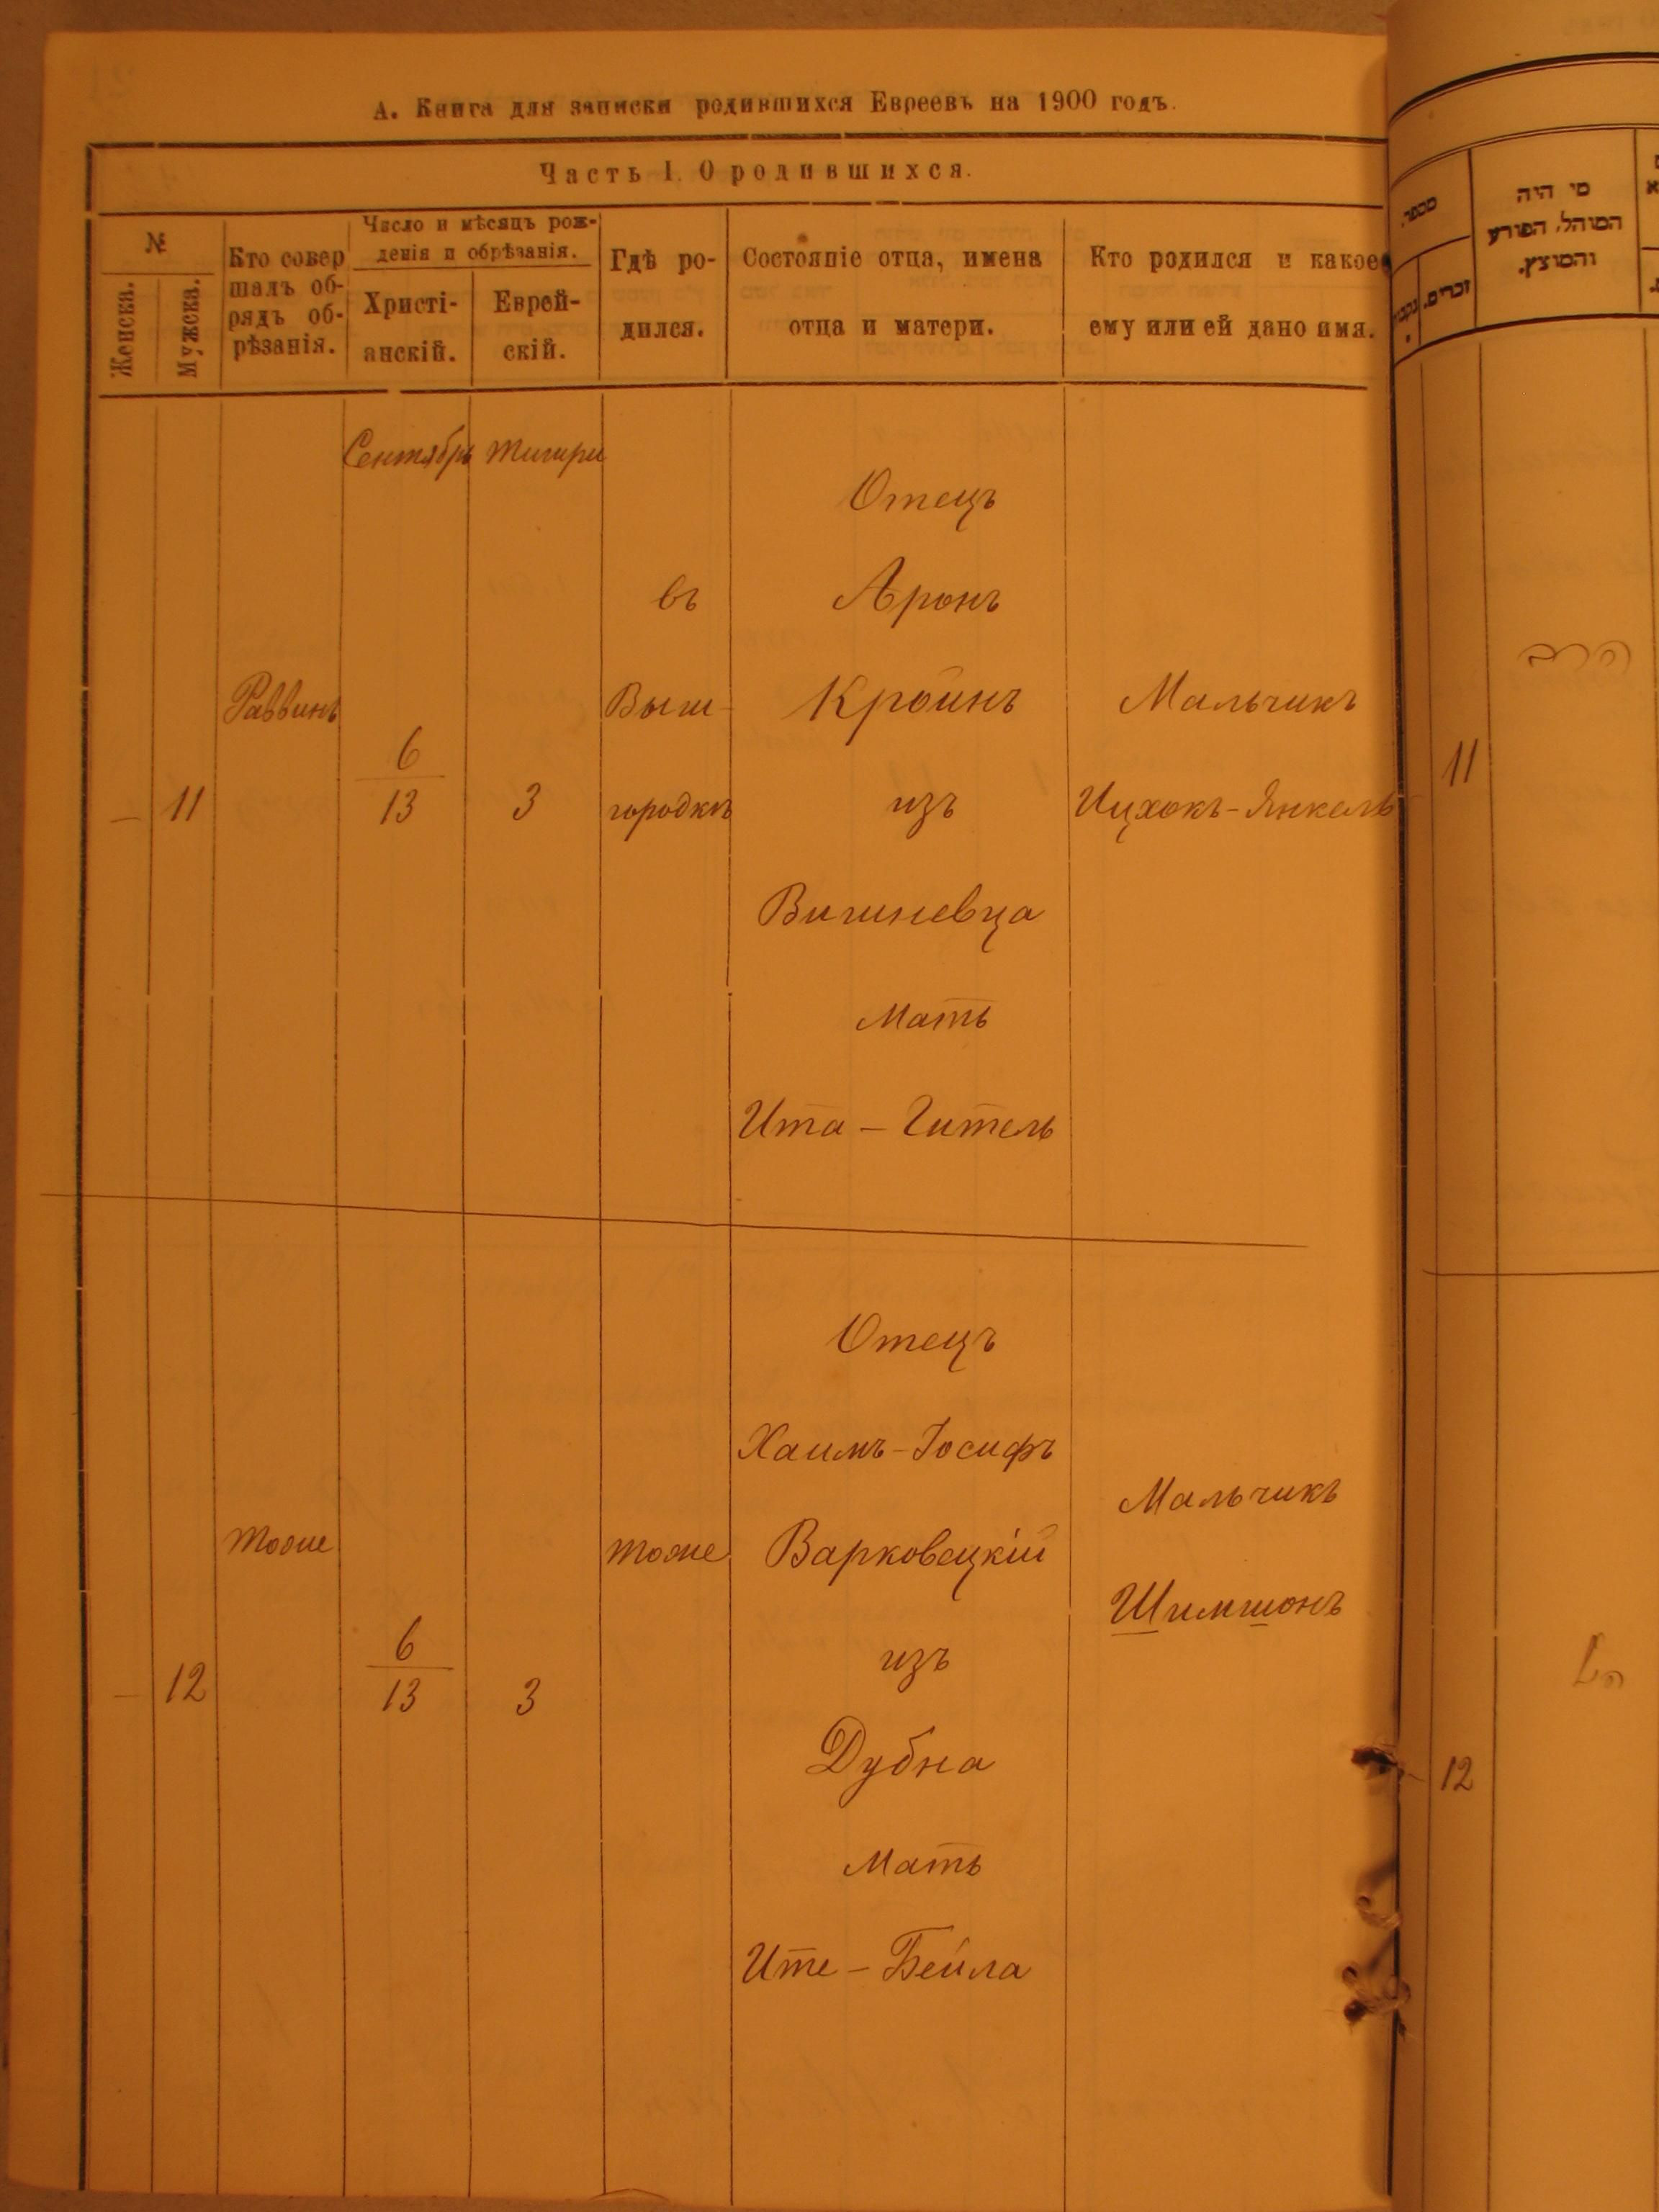 А. Книга для записки родившихся Евреевъ на 1900 годъ.
Часть I. О родившихся.
№
Женска.
Мужска.
Кто совер
шалъ об-
рядъ об-
рѣзанія.
Число и мѣсяцъ рож-
денія и обрѣзанія.
Христі-
анскій.
Еврей-
скій.
Гдѣ ро-
дился.
Состояніе отца, имена
отца и матери.
Кто родился и какое
ему или ей дано имя.
Сентябрь Тишри
Отецъ
въ Аронъ
Раввинъ Выш- Кройнъ Мальчикъ
— 11 6/13 3 городкѣ изъ Ицхокъ-Янкель
Вишневца
Мать
Ита - Гитель
Отецъ
Хаимъ-Іосифъ
Мальчикъ
тоже тоже Варковецкій
Шимшонъ
— 12 6/13 3 изъ
Дубна
Мать
Ите - Бейла
מספר.
זכרים.
מי היה
המוהל, הפורע
והמוצץ.
הרב
11
12